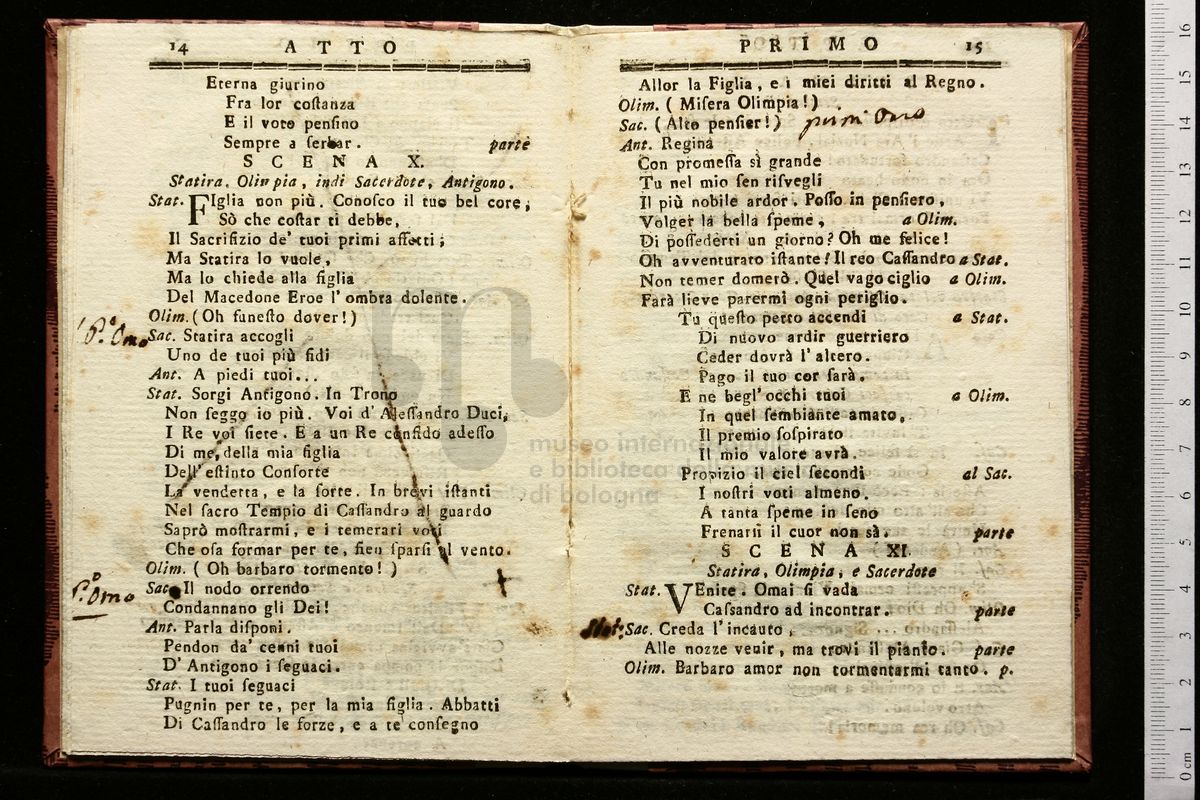 14 ATTO
Eterna giurino
Fra lor coſtanza
E il voto penſino
Sempre a ſerbar. parte
SCENA X.
Statira, Olimpia, indi Sacerdote, Antigono.
Stat. FIglia non più. Conoſco il tuo bel core,
Sò che coſtar ti debbe,
Il Sacrifizio de' tuoi primi affetti;
Ma Statira lo vuole,
Ma lo chiede alla figlia
Del Macedone Eroe l'ombra dolente.
Olim. (Oh funeſto dover!)
P.º Omo Sac. Statira accogli
Uno de tuoi più fidi
Ant. A piedi tuoi...
Stat. Sorgi Antigono. In Trono
Non ſeggo io più. Voi d'Aleſſandro Duci,
I Re voi ſiete. E a un Re confido adeſſo
Di me, della mia figlia
Dell' eſtinto Conſorte
La vendetta, e la ſorte. In brevi iſtanti
Nel ſacro Tempio di Caſſandro al guardo
Saprò moſtrarmi, e i temerari voti
Che oſa formar per te, ſien ſparſi al vento.
Olim. (Oh barbaro tormento!)
P.º Omo Sac. Il nodo orrendo
Condannano gli Dei!
Ant. Parla diſponi.
Pendon da' cenni tuoi
D' Antigono i ſeguaci.
Stat. I tuoi ſeguaci
Pugnin per te, per la mia figlia. Abbatti
Di Caſſandro le forze, e a te conſegno
PRIMO 15
Allor la Figlia, e i miei diritti al Regno.
Olim. (Miſera Olimpia!)
Sac. (Alto penſier!) primi Omo
Ant. Regina
Con promeſſa sì grande
Tu nel mio ſen riſvegli
Il più nobile ardor. Poſſo in penſiero,
Volger la bella ſpeme, a Olim.
Di poſſederti un giorno? Oh me felice!
Oh avventurato iſtante! Il reo Caſſandro a Stat.
Non temer domerò. Quel vago ciglio a Olim.
Farà lieve parermi ogni periglio.
Tu queſto petto accendi a Stat.
Di nuovo ardir guerriero
Ceder dovrà l'altero.
Pago il tuo cor ſarà.
E ne begl'occhi tuoi a Olim.
In quel ſembiante amato,
Il premio ſoſpirato
Il mio valore avrà.
Propizio il ciel ſecondi al Sac.
I noſtri voti almeno.
A tanta ſpeme in ſeno
Frenarſi il cuor non sà. parte
SCENA XI.
Statira, Olimpia, e Sacerdote
Stat. VEnite. Omai ſi vada
Caſſandro ad incontrar. parte
Stat: Sac. Creda l'incauto,
Alle nozze venir, ma trovi il pianto. parte
Olim. Barbaro amor non tormentarmi tanto. p.
museo internazionale
e biblioteca
di bologna
0 cm 1 2 3 4 5 6 7 8 9 10 11 12 13 14 15 16